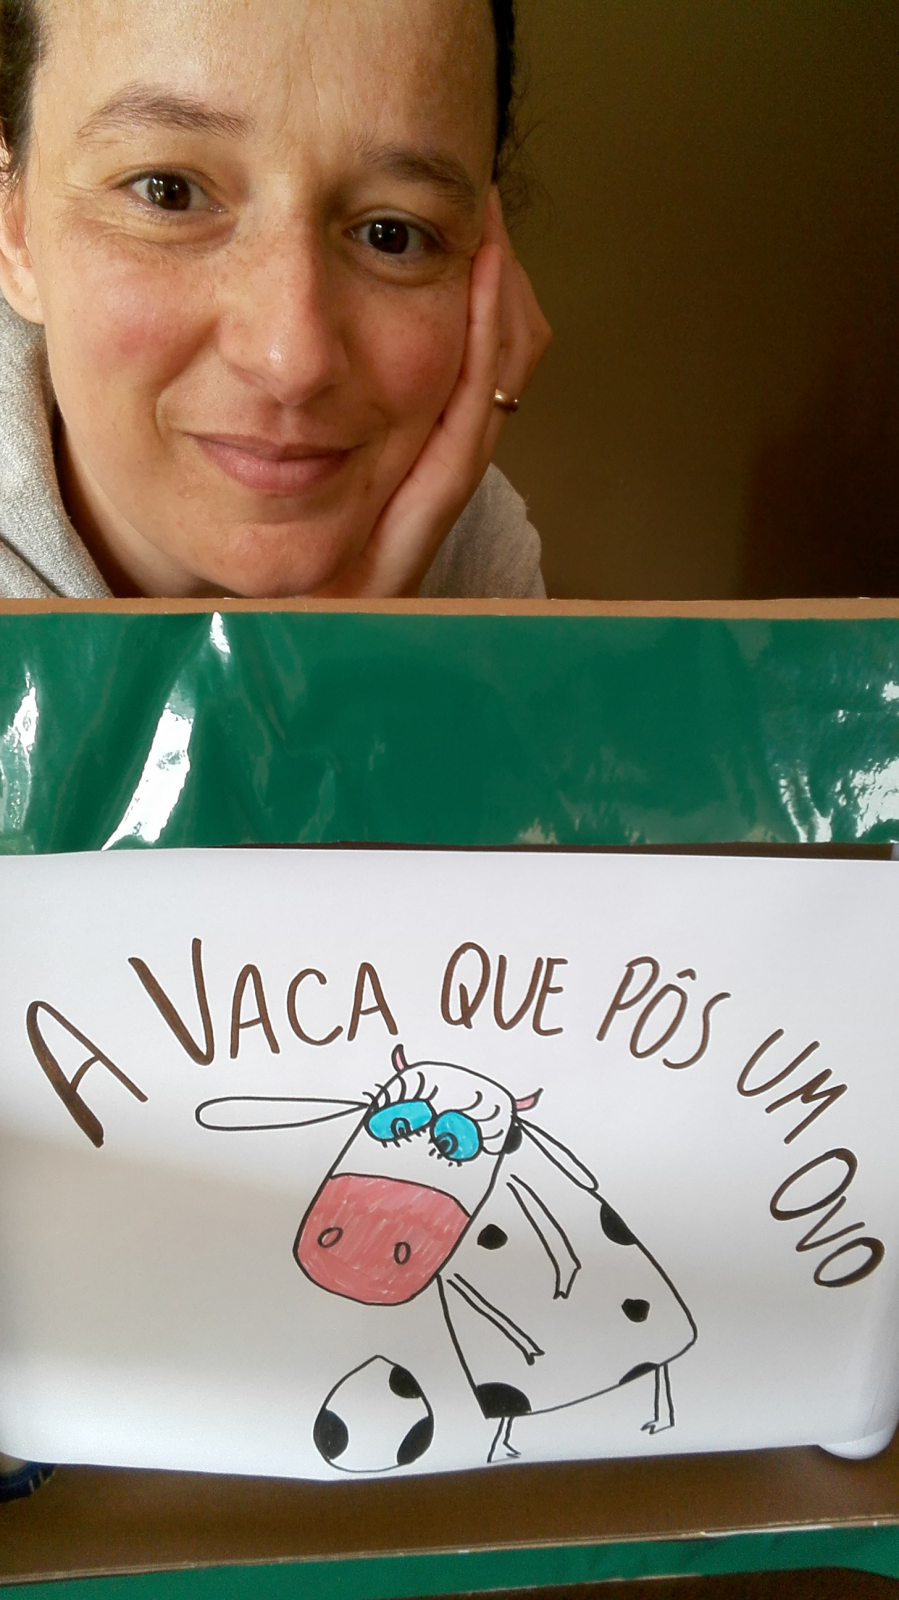 A VACA QUE PÔS UM OVO